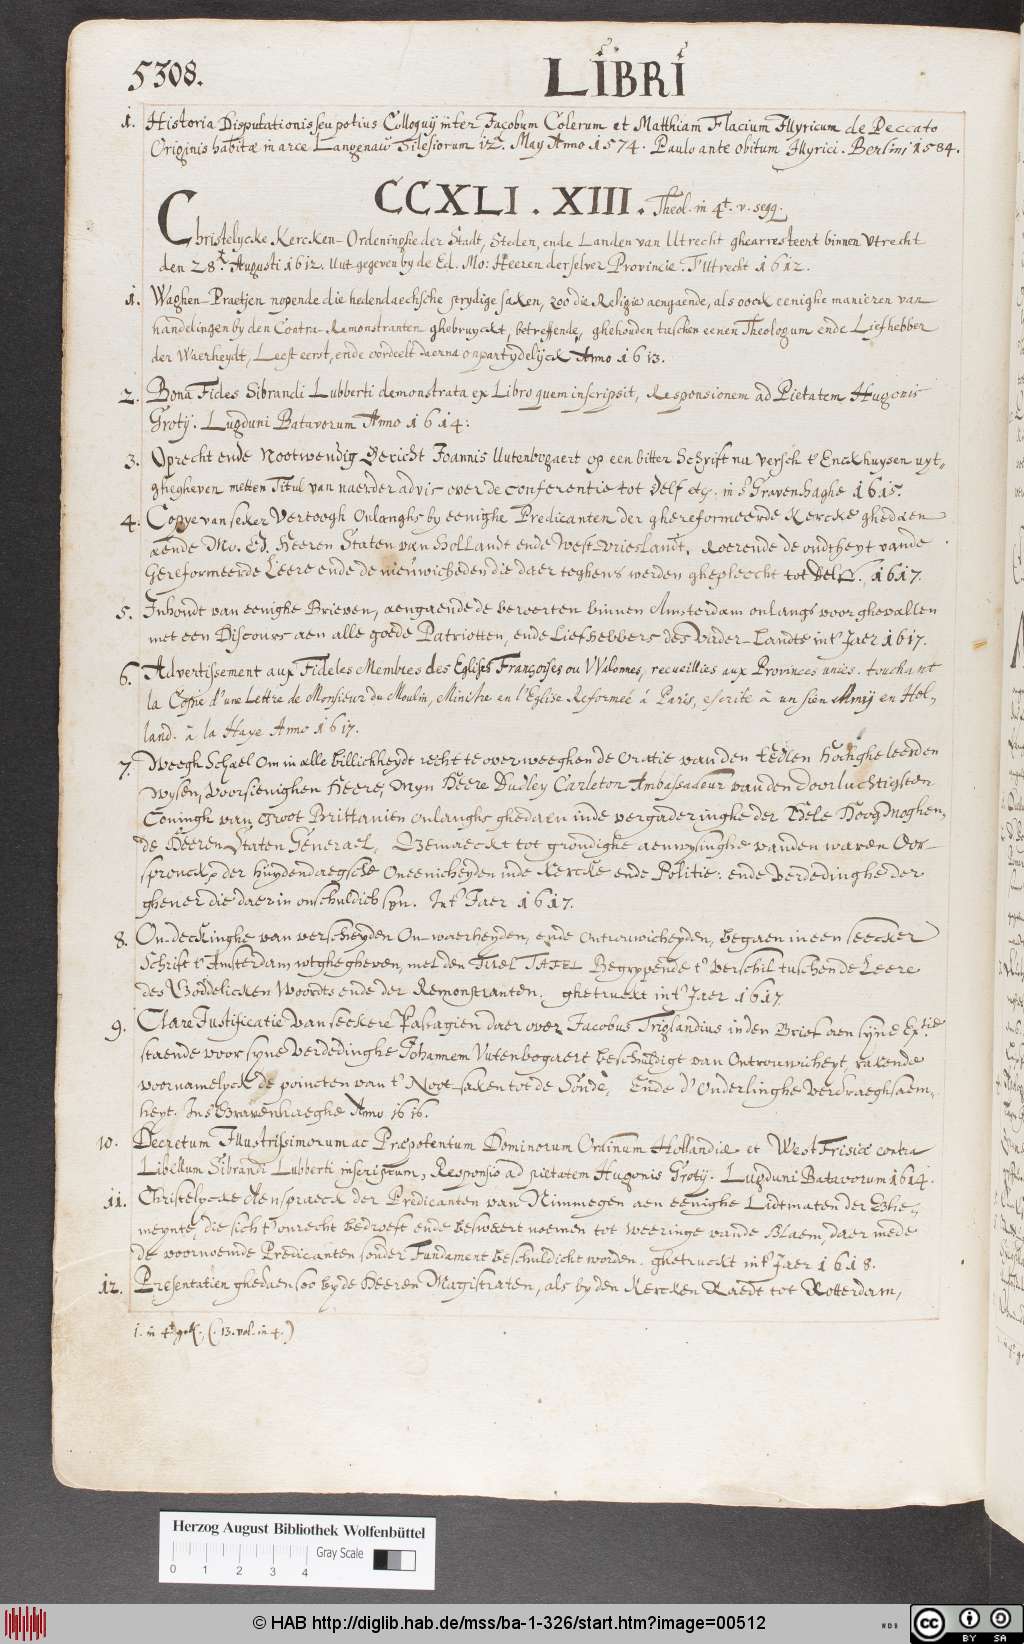 5308.
LIBRI
1. Historia Disputationis seu potius Colloquij inter Jacobum Colerum et Matthiam Flacium Illyricum de Peccato
Originis habitæ in arce Langenau Silesiorum 12. May Anno 1574. Paulo ante obitum Illyrici. Berlini 1584.
CCXLI. XIII. Theol. in 4t. v. seqq.
Christelycke Kercken-Ordeninghe der Stadt, Steden, ende Landen van Utrecht ghearresteert binnen Utrecht
den 28t Augusti 1612. Uut gegeven by de Ed. Mo: Heeren derselver Provincie. T'Utrecht 1612.
1. Waghen-Praetjen nopende die hedendaechsche strydige saken, zoo die Religie aengaende, als oock eenighe manieren van
handelingen by den Contra-Remonstranten ghebruyckt, betreffende, ghehouden tuschen eenen Theologum ende Liefhebber
der Waerheydt, Leest eerst, ende oordeelt daerna onpartydelijck Anno 1613.
2. Bona Fides Sibrandi Lubberti demonstrata ex Libro quem inscripsit, Responsionem ad Pietatem Hugonis
Grotij. Lugduni Batavorum Anno 1614:
3. Oprecht ende Nootwendig Bericht Joannis Uutenbogaert op een bitter Schrift na versch t'Enckhuysen uyt-
ghegheven metten Titul van naerder advis over de conferentie tot Delf etc. in s'GravenHaghe 1615.
4. Copye van seker Vertoogh Onlanghs by eenighe Predicanten der ghereformeerde Kercke ghedaen
aende Mo. Ed. Heeren Staten van Hollandt ende West-vrieslandt, Roerende de oudtheyt vande
Gereformeerde Leere ende de nieuwicheden die daer teghens werden ghepleecht tot Delff, 1617.
5. Inhoudt van eenighe Brieven, aengaende de beroerten binnen Amsterdam onlangs voorghevallen
met een Discours aen alle goede Patriotten, ende Liefhebbers des Vader-Landts int' Jaer 1617.
6. Advertissement aux Fideles Membres des Eglises Françoises ou VValonnes, recueillies aux Provinces unies. touchant
la Copie d'une Lettre de Monsieur du Moulin, Ministre en l'Eglise Reformeé á Paris, escrite à un sien Amij en Hol-
land. à la Haye Anno 1617.
7. Weegh Schael Om in alle billickheydt recht te overweeghen de Oratie van den Eedlen Hooghgheleerden
Wysen, Voorsienighen Heere, Myn Heere Dudley Carleton Ambassadeur vanden doorluchtigsten
Coningh van Groot Brittanien onlanghs ghedaen inde vergaderinghe der Edele Hoog Moghen-
de Heeren Staten Generael, Ghemaeckt tot grondighe aenwysinghe vanden waren Oor-
spronck der huydendaegsche Oneenicheyden inde Kercke ende Politie: ende Verdedinghe der
ghener die daer in onschuldich syn. Int' Jaer 1617.
8. On-deckinghe van verscheyden On-waerheyden, ende ontrouwicheyden, begaen in een seecker
Schrift t'Amsterdam wtghegheven, met den TITEL TAFEL Begrypende t'verschil tuschen de Leere
des Goddelicken Woordts ende der Remonstranten. ghetruckt int' Jaer 1617.
9. Clare Justificatie van seckere Passagien daer over Jacobus Triglandius in den Brief aen syne Extie
staende voor syne verdedinghe Johannem Vutenbogaert beschuldigt van Ontrouwicheyt, rakende
voornamelyck de poincten van t'Noot-saken tot de Sonde, Ende d'Onderlinghe Verdraeghsaem-
heyt. Ins Gravenhaeghe Anno 1616.
10. Decretum Illustrissimorum ac Præpotentum Dominorum Ordinum Hollandiæ et West Frisiæ contra
Libellum Sibrandi Lubberti inscriptum, Responsio ad pietatem Hugonis Grotij. Lugduni Batavorum 1614.
11. Christelycke Aenspraeck der Predicanten van Nimmegen aen eenighe Lidtmaten der Ghe-
meynte, die sich t'onrecht bedroeft ende beswaert noemen tot weeringe vande Blaem, daer mede
de voornoemde Predicanten sonder Fundament beschuldicht worden. ghetruckt int' Jaer 1618.
12. Presentatien ghedaen soo by de Heeren Magistraten, als by den Kercken Raedt tot Rotterdam,
1. in 4t. (. 13. vol. in 4.)
Herzog August Bibliothek Wolfenbüttel
Gray Scale
0 1 2 3 4
© HAB http://diglib.hab.de/mss/ba-1-326/start.htm?image=00512
WDB
cc BY SA